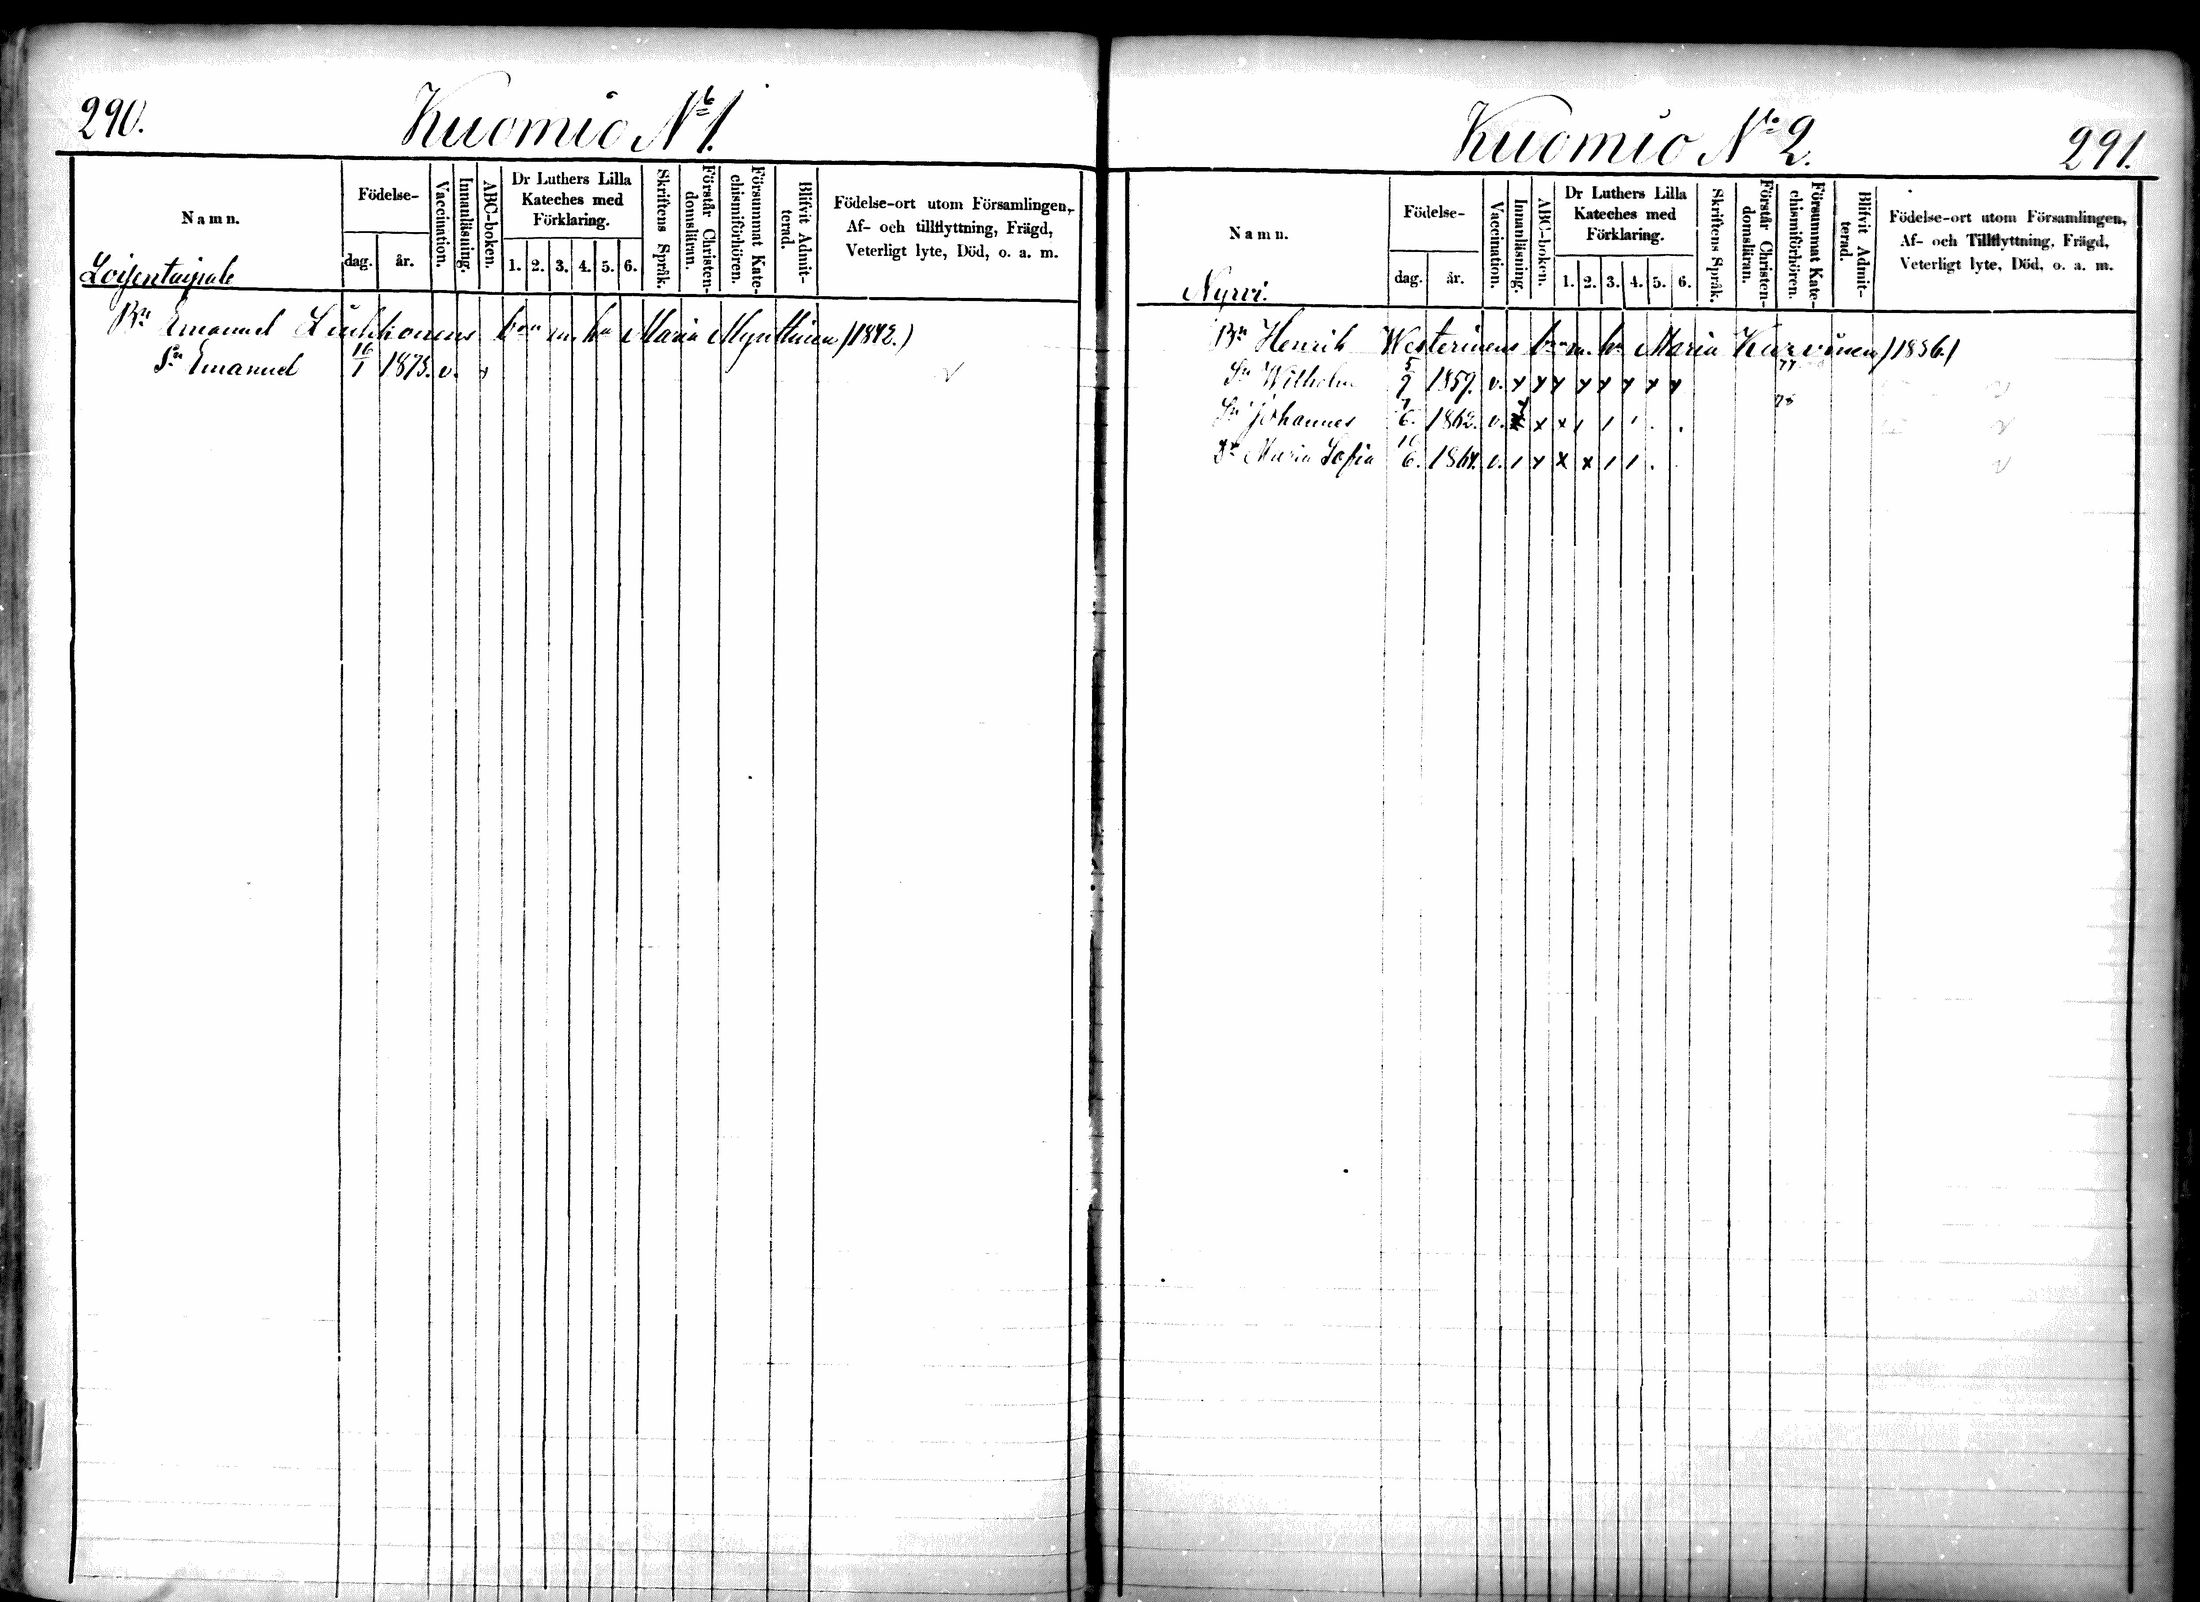 290.
Kuomio No 1.
Namn.
Födelse-
dag.
år.
Vaccination.
Innanläsning.
ABC-boken.
Dr Luthers Lilla
Kateches med
Förklaring.
1. 2. 3. 4. 5. 6.
Skriftens Språk.
Förstår Christen-
domsläran.
Försummat Kate-
chismiförhören.
Blifvit Admit-
terad.
Födelse-ort utom Församlingen,
Af- och tillflyttning, Frägd,
Veterligt lyte, Död, o. a. m.
Loisentaipale
Bn Emanuel barn m. hu Maria Mynttinen /1842.)
Sn Emanuel 16/1 1875. v. x
Kuomio No 2.
291.
Namn.
Födelse-
dag.
år.
Vaccination.
Innanläsning.
ABC-boken.
Dr Luthers Lilla
Kateches med
Förklaring.
1. 2. 3. 4. 5. 6.
Skriftens Språk.
Förstår Christen-
domsläran.
Försummat Kate-
chismiförhören.
Blifvit Admit-
terad.
Födelse-ort utom Församlingen,
Af- och Tillflyttning, Frägd,
Veterligt lyte, Död, o. a. m.
Nyrvi.
Bn Henrik Westerinens barn m. hu Maria Karvinen /1836./
Sn Wilhelm 5/9 1859. v. x x x x x x x x 77
Sn Johannes 7/6. 1862. v. x x x / / / . . 78
Dr Maria Sofia 16/6. 1864. v. / x x x / / .